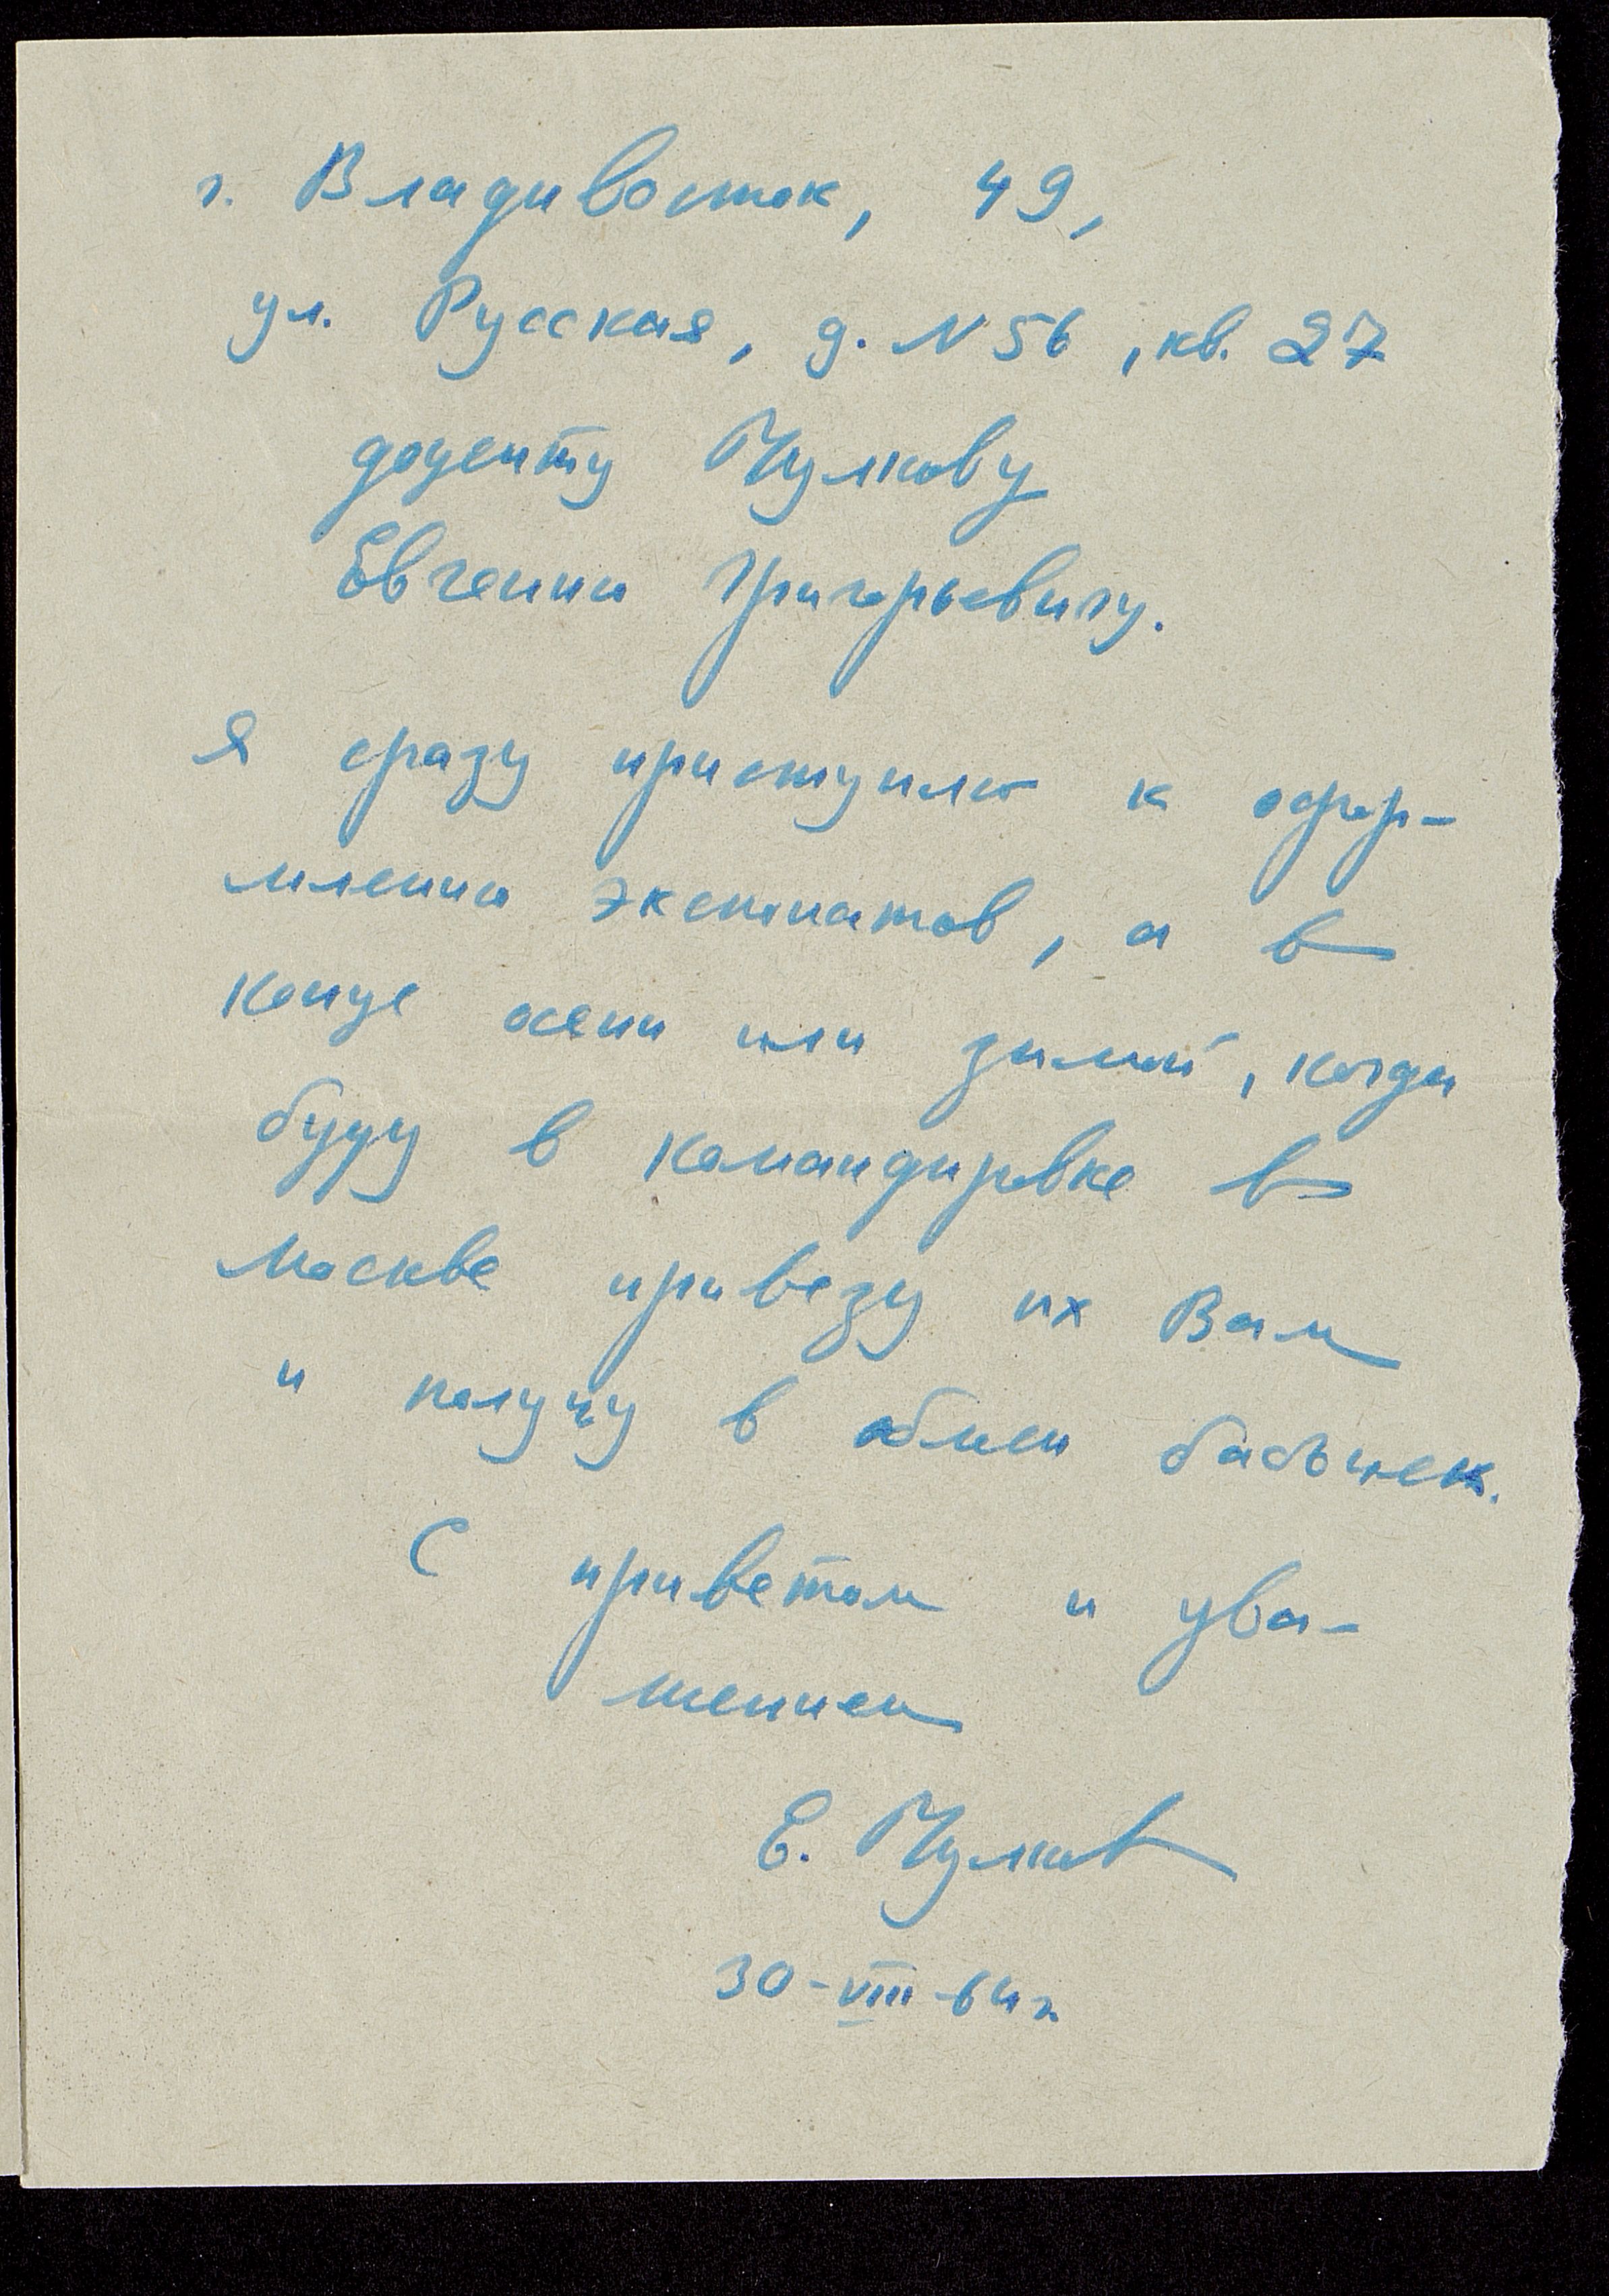 г. Владивосток, 49,
ул. Русская, д. N 56, кв. 27
доценту Чулкову
Евгению Григорьевичу.
Я сразу приступлю к офор-
млению экспонатов, а в
конце осени или зимой, когда
буду в командировке в
Москве привезу их Вам
и получу в обмен бабочек.
С приветом и ува-
жением
Е. Чулков
30-VIII-64г.